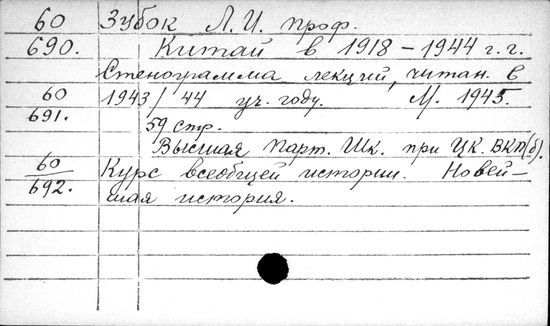 60 Зубок Л.И. проф.
690. Китай в 1918-1944 г.г.
Стенограмма лекций, читан. в
60 1943/44 уч. году. М. 1945.
691. 59 стр.
Высшая Парт. Шк. при ЦК. ВКП(б).
60 Курс всеобщей истории. Новей-
692. шая история.